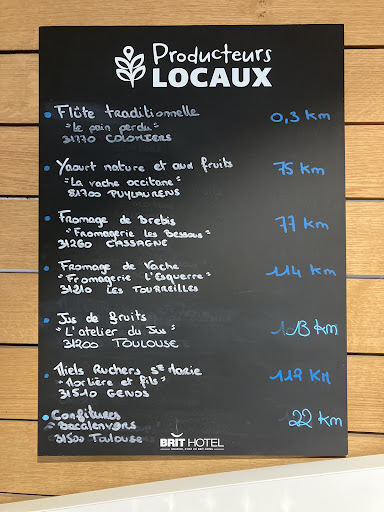 Producteurs
LOCAUX
Flûte traditionnelle 0,3 Km
"Le pain perdu"
31770 COLOMIERS
Yaourt nature et aux fruits 75 Km
"La vache occitane"
81700 PUYLAURENS
Fromage de Brebis 77 Km
"Fromagerie les Bessous"
31260 CASSAGNE
Fromage de Vache 114 Km
"Fromagerie l'Esquerre"
31210 LES TOURREILLES
Jus de fruits 13 Km
"L'atelier du Jus"
31200 TOULOUSE
Miels Ruchers Ste Marie 119 Km
et fils"
31510 GENOS
Confitures 22 Km
Bacalenvers
31500 Toulouse
BRIT HOTEL